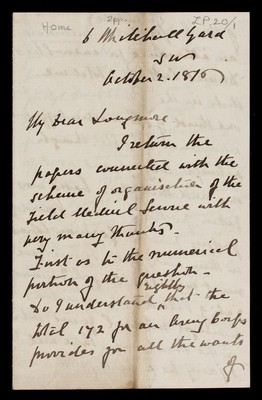 Home
2pp.
L.P. 20/1
6 Whitehall Yard
SW
October 2. 187
My Dear Longmore
I return the
papers connected with the
scheme of organisation of the
Field Medical Service with
very many thanks.
First as to the numerical
portion of the question -
Do I understand rightly that the
total 172 for an Army Corps
provides for all the wants
of